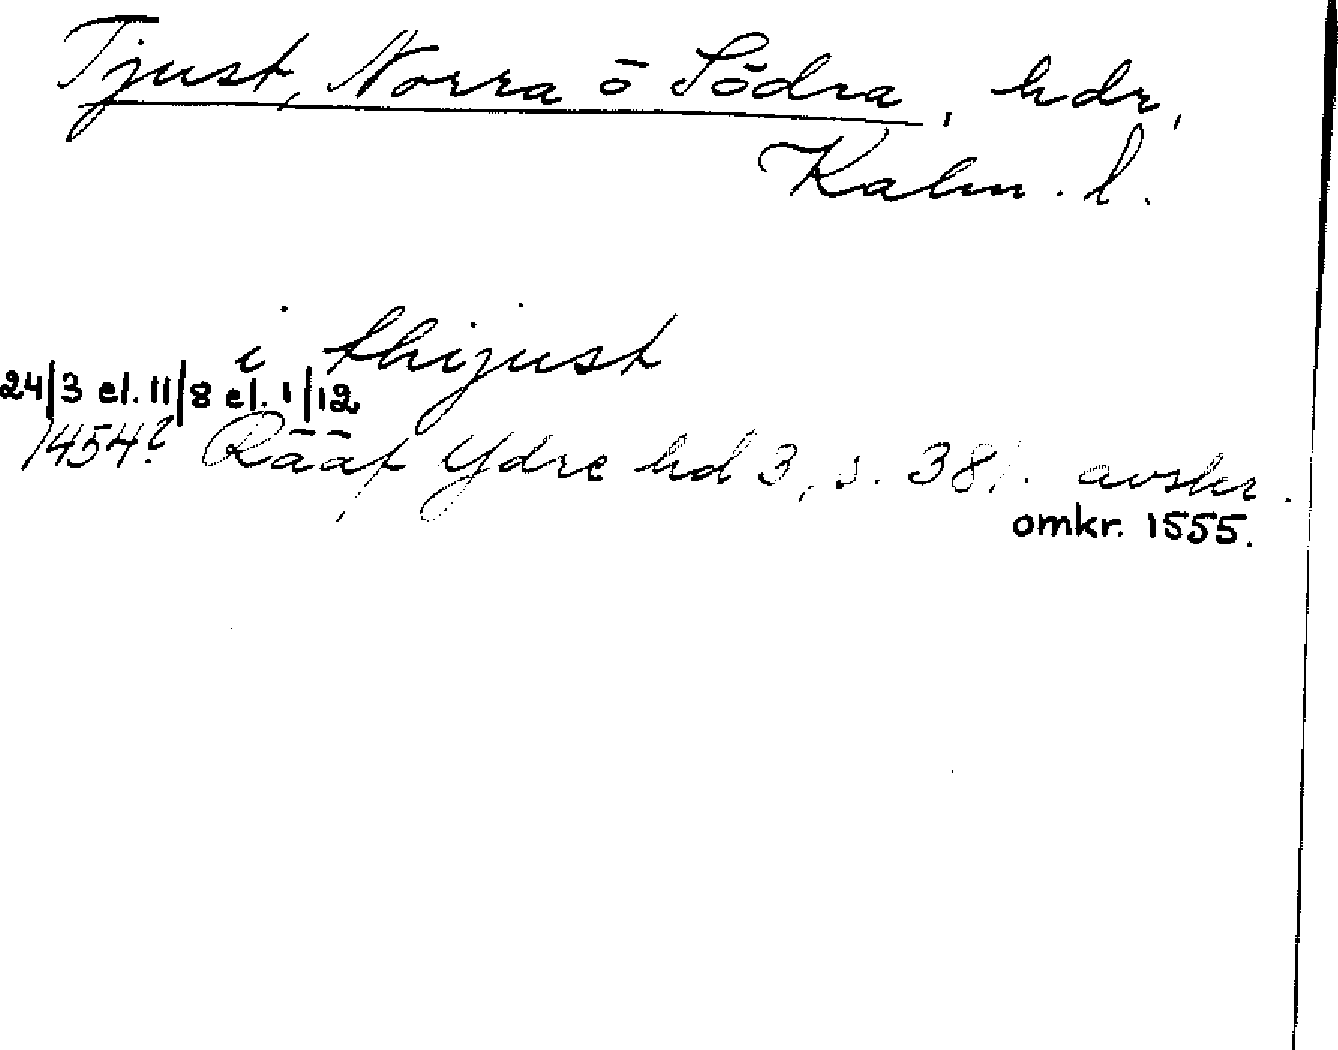 Tjust, Norra o Södra, hdr,
Kalm. l.
i thijust
24/3 el. 11/8 el. 1/12
1454? Rääf Ydre hd 3, s. 381. avskr.
omkr. 1555.